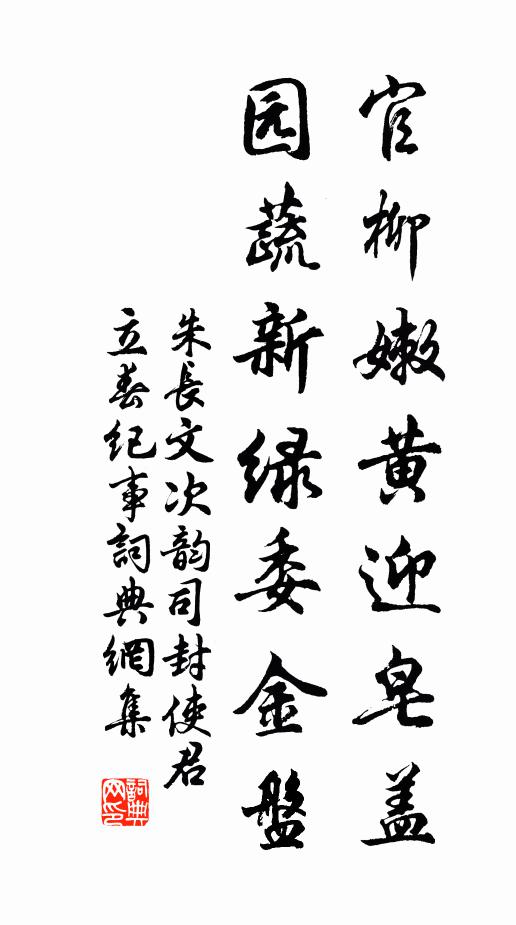 官柳嫩黄迎皂盖
园蔬新绿委金盤
朱長文次韵司封使君
立春纪事詞典網集
詞典
网印